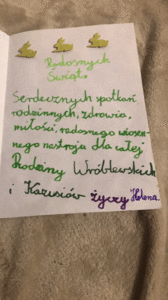 Radosnych
Świąt.
Serdecznych spotkań
rodzinnych, zdrowia,
miłości, radosnego wiosen-
nego nastroju dla całej
Rodziny Wróblewskich
i Kazusiów życzy Helena